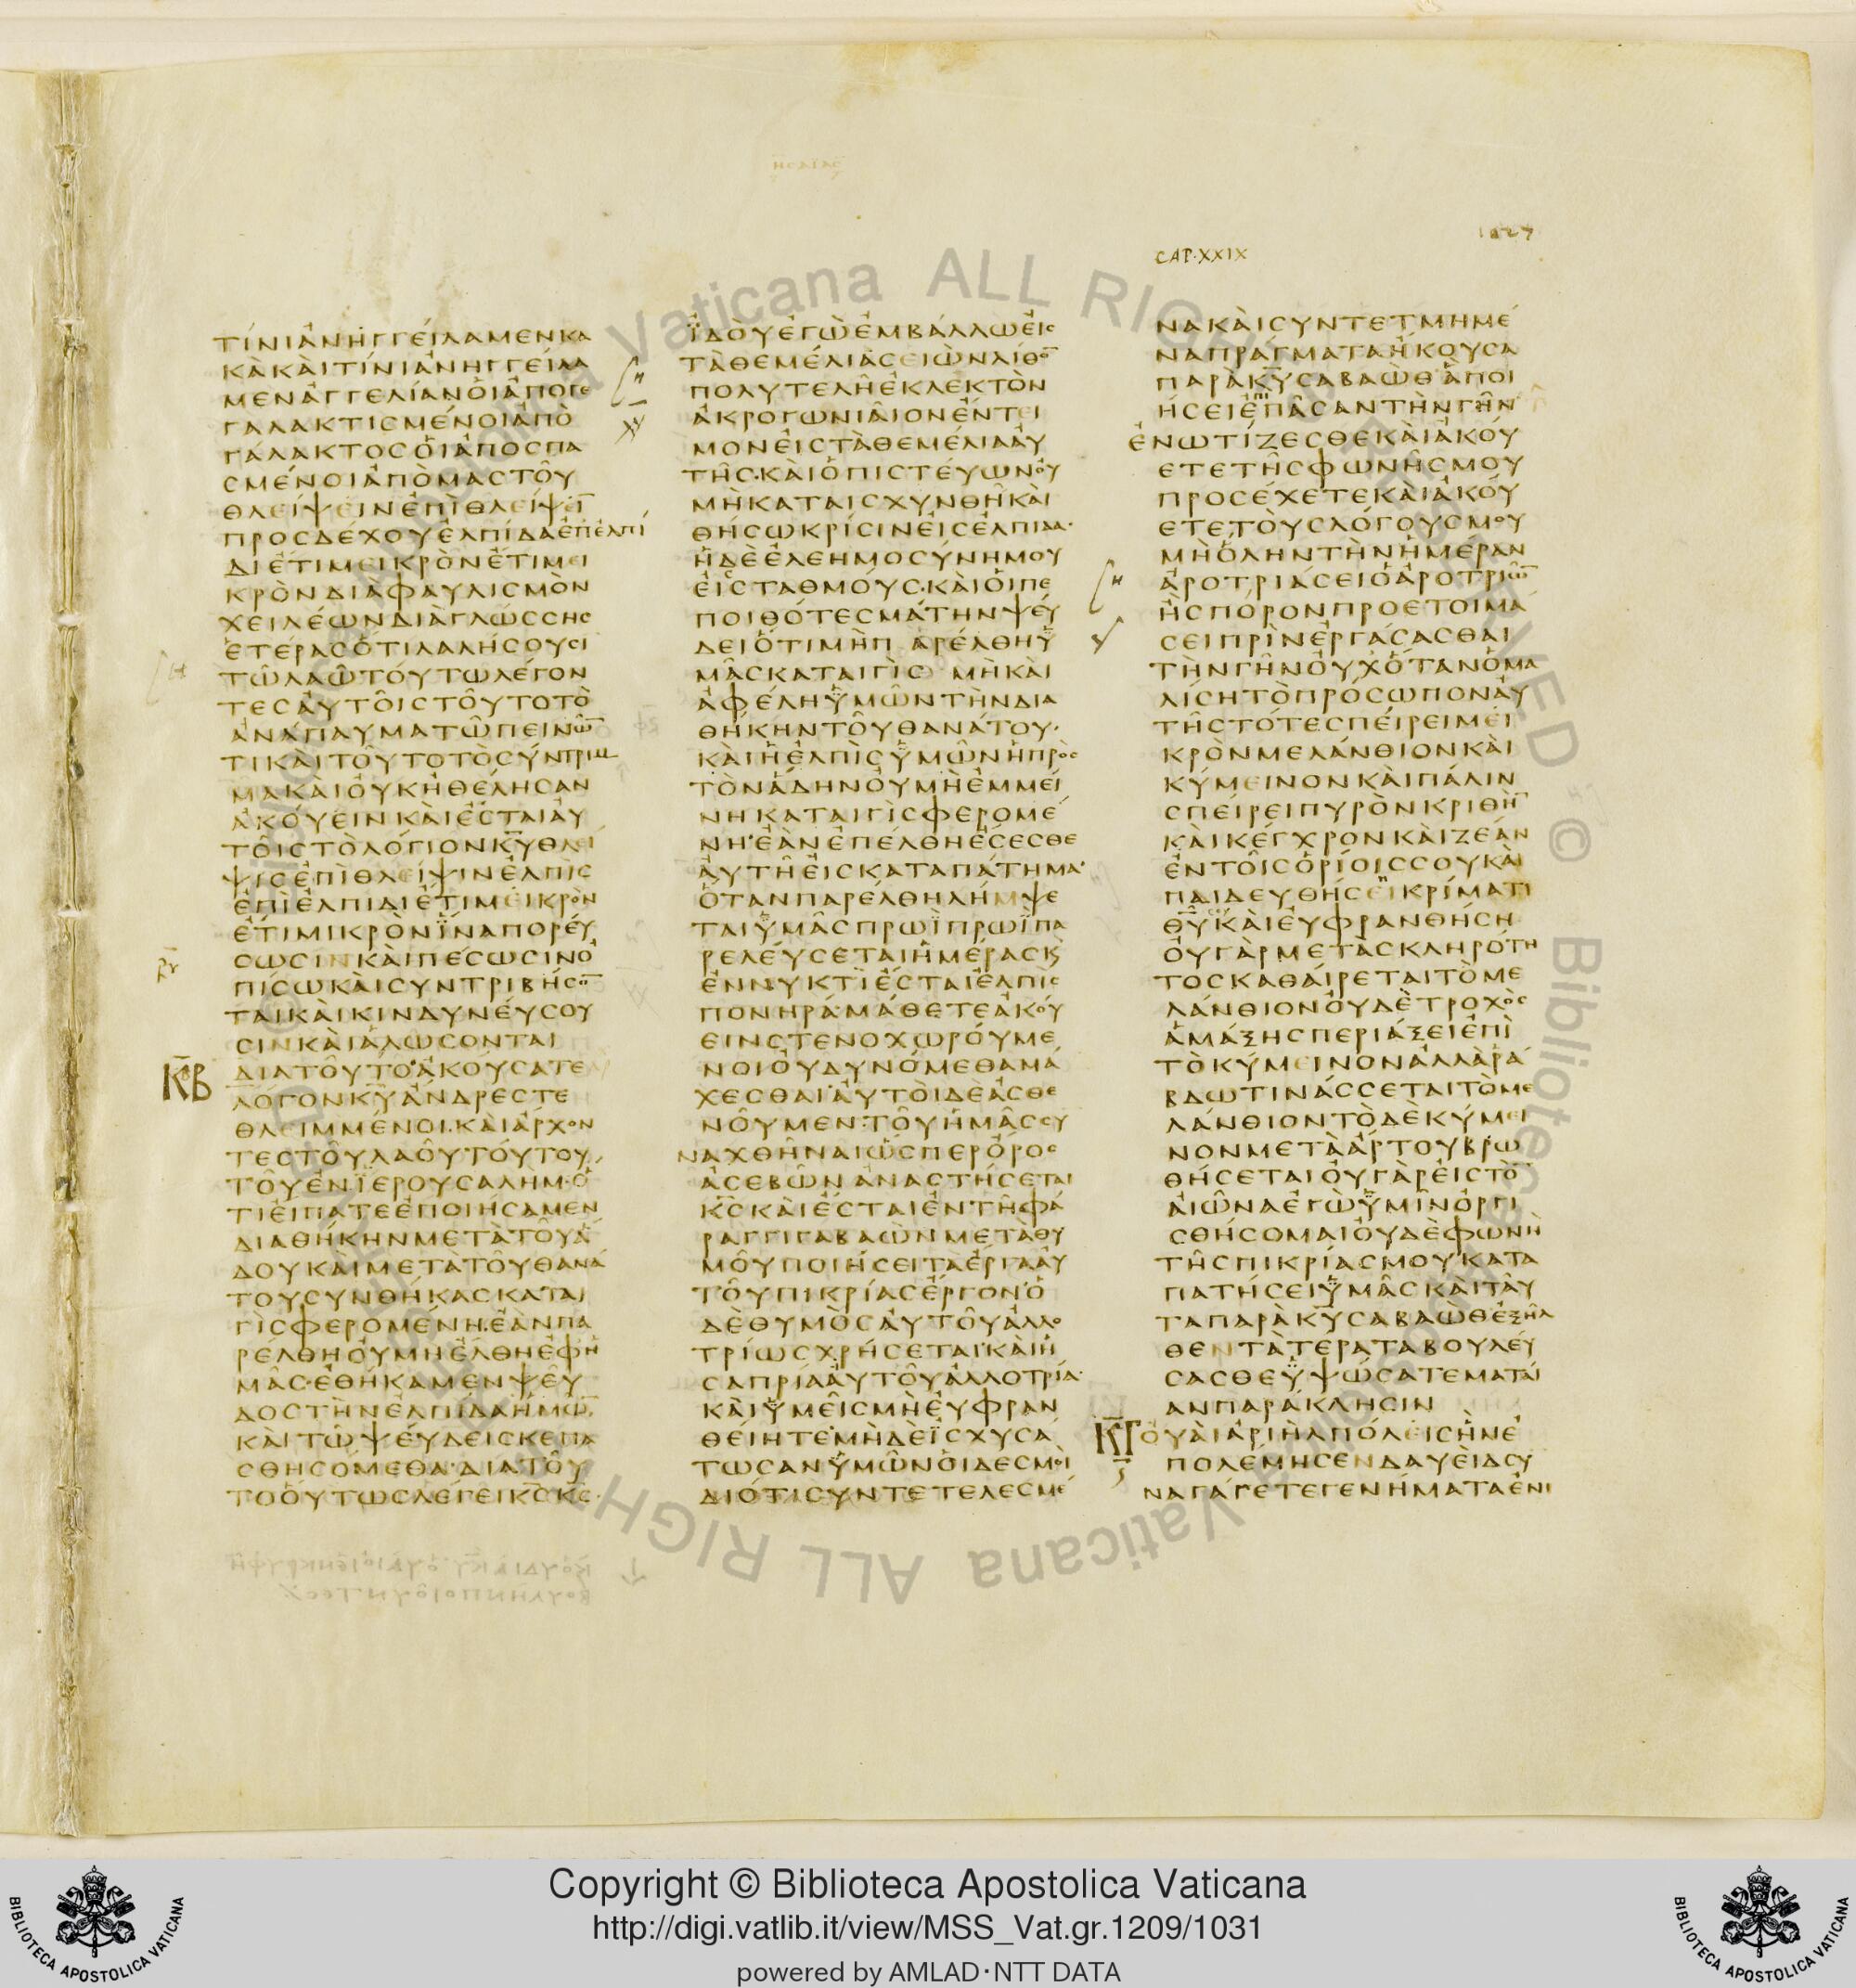 ΗCΑΙΑC
1027
CAP·XXIX
ΤΙΝΙΑΝΗΓΓΕΙΛΑΜΕΝΚΑ
ΚΑΚΑΙΤΙΝΙΑΝΗΓΓΕΙΛΑ
ΜΕΝΑΓΓΕΛΙΑΝΟΙΑΠΟΓΕ
ΓΑΛΑΚΤΙCΜΕΝΟΙΑΠΟ
ΓΑΛΑΚΤΟCΟΙΑΠΟCΠΑ
CΜΕΝΟΙΑΠΟΜΑCΤΟΥ
ΘΛΕΙΨΕΙΝΕΠΙΘΛΕΙΨΕΙ̅
ΠΡΟCΔΕΧΟΥΕΛΠΙΔΑΕΠΕΛΠΙ
ΔΙΕΤΙΜΕΙΚΡΟΝΕΤΙΜΕΙ
ΚΡΟΝΔΙΑΦΑΥΛΙCΜΟΝ
ΧΕΙΛΕΩΝΔΙΑΓΛΩCCΗC
ΕΤΕΡΑCΟΤΙΛΑΛΗCΟΥCΙ
ΤΩΛΑΩΤΟΥΤΩΛΕΓΟΝ
ΤΕCΑΥΤΟΙCΤΟΥΤΟΤΟ
ΑΝΑΠΑΥΜΑΤΩΠΕΙΝΩ̅
ΤΙΚΑΙΤΟΥΤΟΤΟCΥΝΤΡΙΜ
ΜΑΚΑΙΟΥΚΗΘΕΛΗCΑΝ
ΑΚΟΥΕΙΝΚΑΙΕCΤΑΙΑΥ
ΤΟΙCΤΟΛΟΓΙΟΝΚ̅Υ̅ΘΛΕΙ
ΨΙCΕΠΙΘΛΕΙΨΙΝΕΛΠΙC
ΕΠΙΕΛΠΙΔΙΕΤΙΜΕΙΚΡΟΝ
ΕΤΙΜΙΚΡΟΝΙΝΑΠΟΡΕΥ
CΩCΙΝΚΑΙΠΕCΩCΙΝΟ
ΠΙCΩΚΑΙCΥΝΤΡΙΒΗCΟ̅
ΤΑΙΚΑΙΚΙΝΔΥΝΕΥCΟΥ
CΙΝΚΑΙΑΛΩCΟΝΤΑΙ
ΚΒ ΔΙΑΤΟΥΤΟΑΚΟΥCΑΤΕ
ΛΟΓΟΝΚ̅Υ̅ΑΝΔΡΕCΤΕ
ΘΛΕΙΜΜΕΝΟΙ·ΚΑΙΑΡΧΟΝ
ΤΕCΤΟΥΛΑΟΥΤΟΥΤΟΥ
ΤΟΥΕΝΪΕΡΟΥCΑΛΗΜ·Ο
ΤΙΕΙΠΑΤΕΕΠΟΙΗCΑΜΕΝ
ΔΙΑΘΗΚΗΝΜΕΤΑΤΟΥΑ
ΔΟΥΚΑΙΜΕΤΑΤΟΥΘΑΝΑ
ΤΟΥCΥΝΘΗΚΑCΚΑΤΑΙ
ΓΙCΦΕΡΟΜΕΝΗ·ΕΑΝΠΑ
ΡΕΛΘΗΟΥΜΗΕΛΘΗΕΦΗ
ΜΑC·ΕΘΗΚΑΜΕΝΨΕΥ
ΔΟCΤΗΝΕΛΠΙΔΑΗΜΩ̅
ΚΑΙΤΩΨΕΥΔΕΙCΚΕΠΑ
CΘΗCΟΜΕΘΑ·ΔΙΑΤΟΥ
ΤΟΟΥΤΩCΛΕΓΕΙΚ̅C̅Κ̅C̅·
ΪΔΟΥΕΓΩΕΜΒΑΛΛΩΕΙC
ΤΑΘΕΜΕΛΙΑCΕΙΩΝΛΙΘΟ̅
ΠΟΛΥΤΕΛΗΕΚΛΕΚΤΟΝ
ΑΚΡΟΓΩΝΙΑΙΟΝΕΝΤΕΙ
ΜΟΝΕΙCΤΑΘΕΜΕΛΙΑΑΥ
ΤΗC·ΚΑΙΟΠΙCΤΕΥΩΝΟΥ
ΜΗΚΑΤΑΙCΧΥΝΘΗΚΑΙ
ΘΗCΩΚΡΙCΙΝΕΙCΕΛΠΙΔΑ·
ΗΔΕΕΛΕΗΜΟCΥΝΗΜΟΥ
ΕΙCΤΑΘΜΟΥC·ΚΑΙΟΙΠΕ
ΠΟΙΘΟΤΕCΜΑΤΗΝΨΕΥ
ΔΕΙΟΤΙΜΗΠΑΡΕΛΘΗΫ
ΜΑCΚΑΤΑΙΓΙC ΜΗΚΑΙ
ΑΦΕΛΗΫΜΩΝΤΗΝΔΙΑ
ΘΗΚΗΝΤΟΥΘΑΝΑΤΟΥ·
ΚΑΙΗΕΛΠΙCΫΜΩΝΗΠΡΟC
ΤΟΝΑΔΗΝΟΥΜΗΕΜΜΕΙ
ΝΗΚΑΤΑΙΓΙCΦΕΡΟΜΕ
ΝΗ·ΕΑΝΕΠΕΛΘΗΕCΕCΘΕ
ΑΥΤΗΕΙCΚΑΤΑΠΑΤΗΜΑ·
ΟΤΑΝΠΑΡΕΛΘΗΛΗΜΨΕ
ΤΑΙΫΜΑCΠΡΩΪΠΡΩΪΠΑ
ΡΕΛΕΥCΕΤΑΙΗΜΕΡΑCΚ
ΕΝΝΥΚΤΙΕCΤΑΙΕΛΠΙC
ΠΟΝΗΡΑ·ΜΑΘΕΤΕΑΚΟΥ
ΕΙΝCΤΕΝΟΧΩΡΟΥΜΕ
ΝΟΙΟΥΔΥΝΟΜΕΘΑΜΑ
ΧΕCΘΑΙ·ΑΥΤΟΙΔΕΑCΘΕ
ΝΟΥΜΕΝ·ΤΟΥΗΜΑCCΥ
ΝΑΧΘΗΝΑΙΩCΠΕΡΟΡΟC
ΑCΕΒΩΝΑΝΑCΤΗCΕΤΑΙ
Κ̅C̅ΚΑΙΕCΤΑΙΕΝΤΗΦΑ
ΡΑΓΓΙΓΑΒΑΩΝΜΕΤΑΘΥ
ΜΟΥΠΟΙΗCΕΙΤΑΕΡΓΑΑΥ
ΤΟΥΠΙΚΡΙΑCΕΡΓΟΝ·Ο
ΔΕΘΥΜΟCΑΥΤΟΥΑΛΛΟ
ΤΡΙΩCΧΡΗCΕΤΑΙ·ΚΑΙΗ
CΑΠΡΙΑΑΥΤΟΥΑΛΛΟΤΡΙΑ·
ΚΑΙΫΜΕΙCΜΗΕΥΦΡΑΝ
ΘΕΙΗΤΕ·ΜΗΔΕΪCΧΥCΑ
ΤΩCΑΝΫΜΩΝΟΙΔΕCΜΟΙ
ΔΙΟΤΙCΥΝΤΕΤΕΛΕCΜΕ
ΝΑΚΑΙCΥΝΤΕΤΜΗΜΕ
ΝΑΠΡΑΓΜΑΤΑΗΚΟΥCΑ
ΠΑΡΑΚ̅Υ̅CΑΒΑΩΘΑΠΟΙ
ΗCΕΙΕΠΑCΑΝΤΗΝΓΗΝ
ΕΝΩΤΙΖΕCΘΕΚΑΙΑΚΟΥ
ΕΤΕΤΗCΦΩΝΗCΜΟΥ
ΠΡΟCΕΧΕΤΕΚΑΙΑΚΟΥ
ΕΤΕΤΟΥCΛΟΓΟΥCΜΟΥ
ΜΗΟΛΗΝΤΗΝΗΜΕΡΑΝ
ΑΡΟΤΡΙΑCΕΙΟΑΡΟΤΡΙΩ̅
ΗCΠΟΡΟΝΠΡΟΕΤΟΙΜΑ
CΕΙΠΡΙΝΕΡΓΑCΑCΘΑΙ
ΤΗΝΓΗΝΟΥΧΟΤΑΝΟΜΑ
ΛΙCΗΤΟΠΡΟCΩΠΟΝΑΥ
ΤΗCΤΟΤΕCΠΕΙΡΕΙΜΕΙ
ΚΡΟΝΜΕΛΑΝΘΙΟΝΚΑΙ
ΚΥΜΕΙΝΟΝΚΑΙΠΑΛΙΝ
CΠΕΙΡΕΙΠΥΡΟΝΚΡΙΘΗ̅
ΚΑΙΚΕΓΧΡΟΝΚΑΙΖΕΑΝ
ΕΝΤΟΙCΟΡΙΟΙCCΟΥΚΑΙ
ΠΑΙΔΕΥΘΗCΕΙΚΡΙΜΑΤΙ
Θ̅Υ̅ΚΑΙΕΥΦΡΑΝΘΗCΗ
ΟΥΓΑΡΜΕΤΑCΚΛΗΡΟΤΗ
ΤΟCΚΑΘΑΙΡΕΤΑΙΤΟΜΕ
ΛΑΝΘΙΟΝΟΥΔΕΤΡΟΧΟC
ΑΜΑΞΗCΠΕΡΙΑΞΕΙΕΠΙ
ΤΟΚΥΜΕΙΝΟΝΑΛΛΑΡΑ
ΒΔΩΤΙΝΑCCΕΤΑΙΤΟΜΕ
ΛΑΝΘΙΟΝΤΟΔΕΚΥΜΕΙ
ΝΟΝΜΕΤΑΑΡΤΟΥΒΡΩ
ΘΗCΕΤΑΙΟΥΓΑΡΕΙCΤΟ̅
ΑΙΩΝΑΕΓΩΫΜΙΝΟΡΓΙ
CΘΗCΟΜΑΙΟΥΔΕΦΩΝΗ
ΤΗCΠΙΚΡΙΑCΜΟΥΚΑΤΑ
ΠΑΤΗCΕΙΫΜΑCΚΑΙΤΑΥ
ΤΑΠΑΡΑΚ̅Υ̅CΑΒΑΩΘΕΞΗΛ
ΘΕΝΤΑΤΕΡΑΤΑΒΟΥΛΕΥ
CΑCΘΕΫΨΩCΑΤΕΜΑΤΑΙ
ΑΝΠΑΡΑΚΛΗCΙΝ
ΚΓ ΟΥΑΙΑΡΙΗΛΠΟΛΕΙCΗΝΕ
ΠΟΛΕΜΗCΕΝΔΑΥΕΙΔCΥ
ΝΑΓΑΓΕΤΕΓΕΝΗΜΑΤΑΕΝΙ
Copyright © Biblioteca Apostolica Vaticana
http://digi.vatlib.it/view/MSS_Vat.gr.1209/1031
powered by AMLAD·NTT DATA
BIBLIOTECA APOSTOLICA VATICANA
BIBLIOTECA APOSTOLICA VATICANA